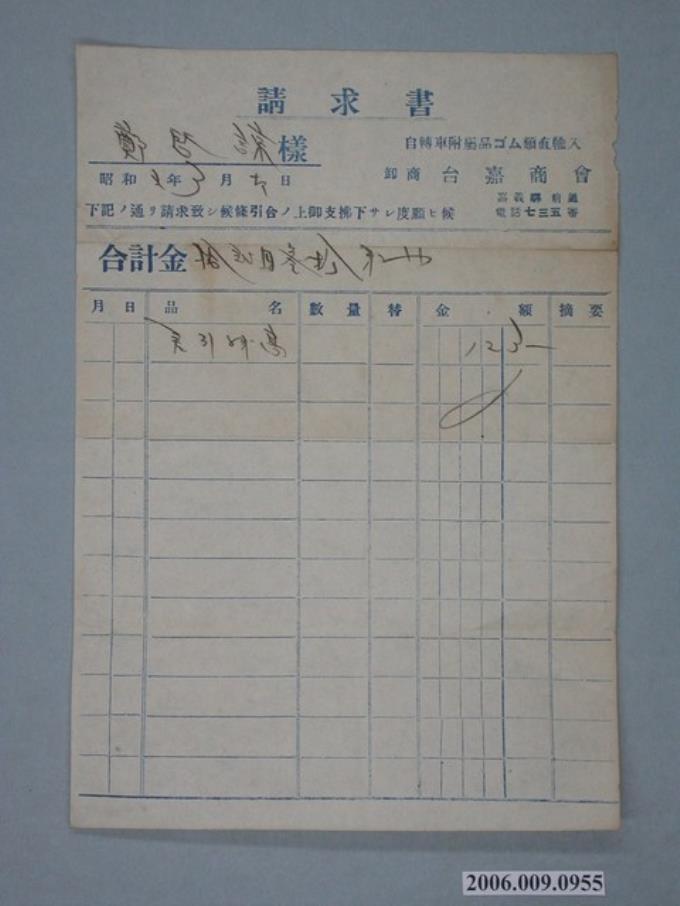 請求書
鄭啓 樣
自轉車附屬品ゴム類直輸入
昭和 年 3 月 日
卸商 台嘉商會
嘉義驛前通
電話七三五番
下記ノ通リ請求致シ候條引合ノ上御支拂下サレ度願ヒ候
合計金
月 日 品名 數量 替 金額 摘要
差引殘高
2006.009.0955